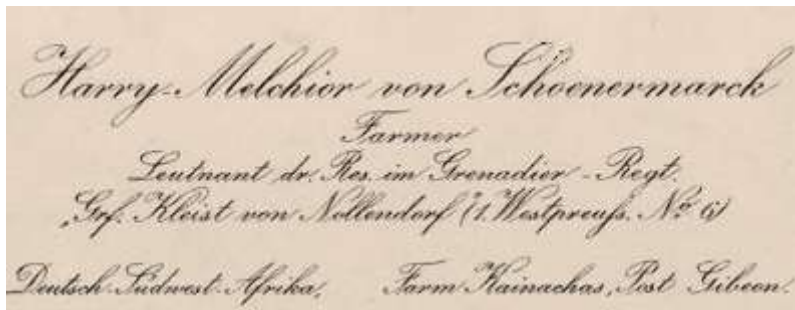 Harry-Melchior von Schoenermarck
Farmer
Leutnant dr. Res. im Grenadier-Regt.
„Grf. Kleist von Nollendorf“ (1. Westpreuß. No 6)
Deutsch-Südwest-Afrika, Farm Kainachas, Post Gibeon.